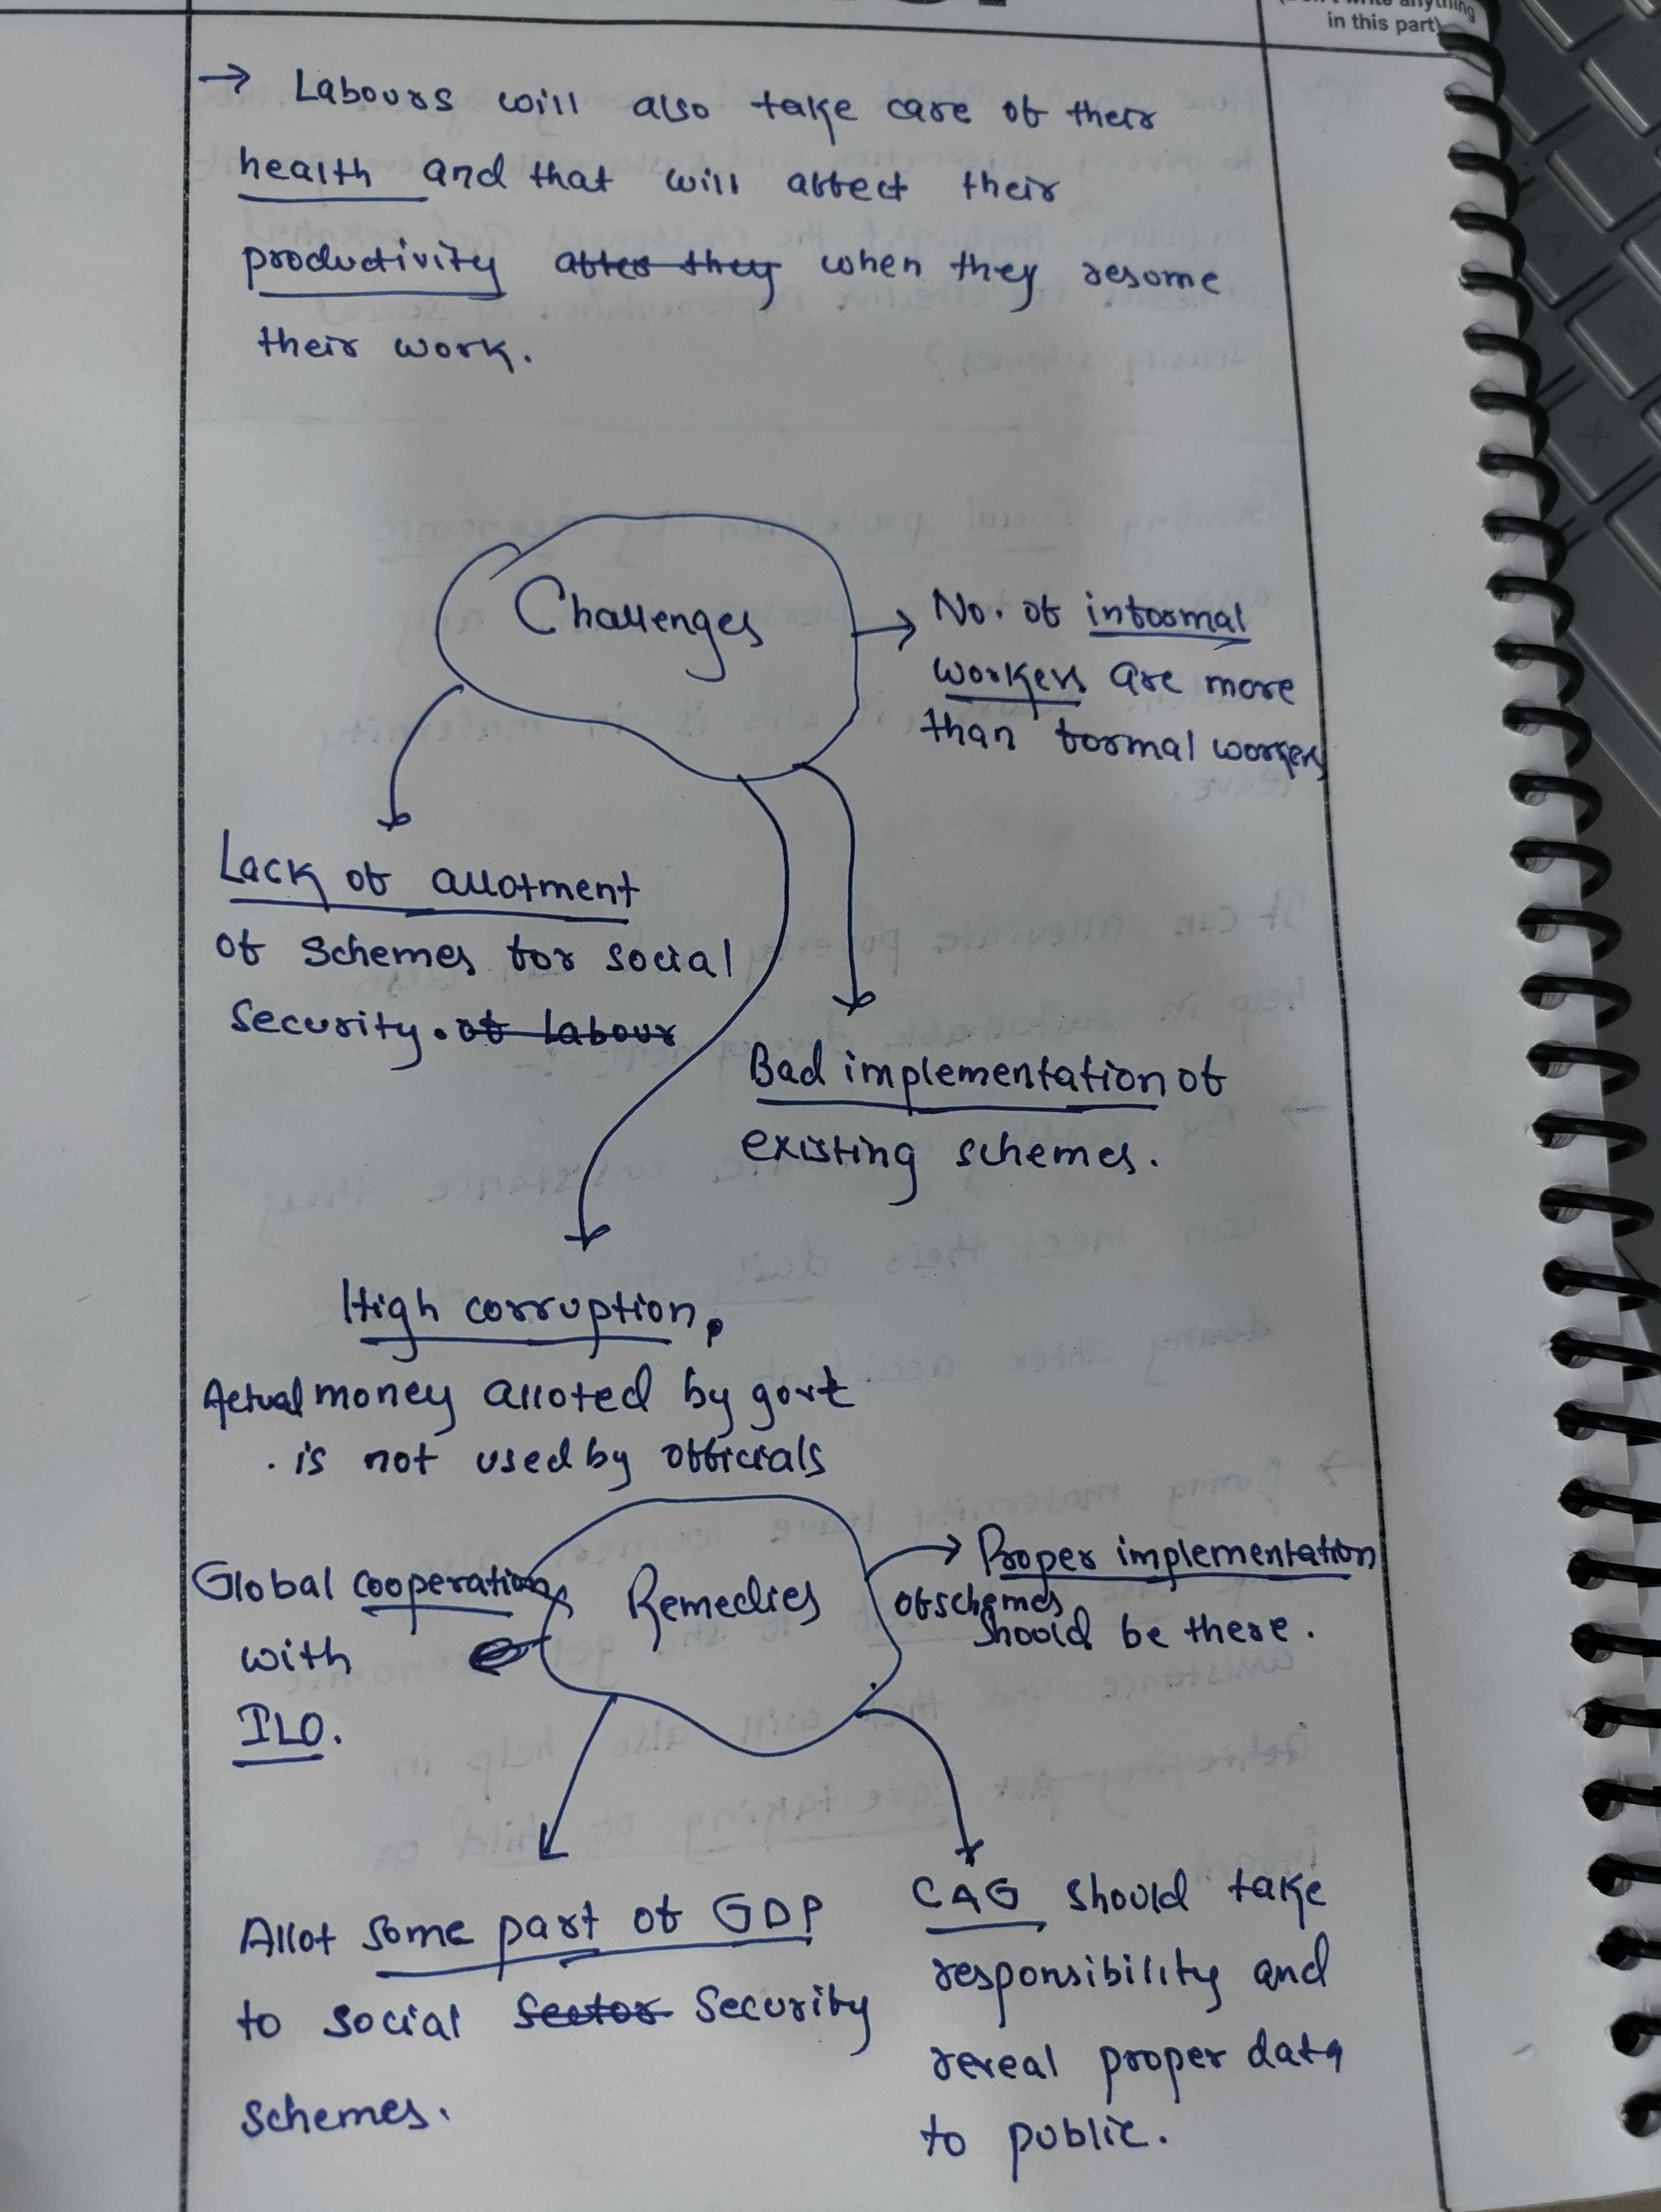 in this part)
→ Labours will also take care of their
health and that will affect their
productivity after they when they resume
their work.
Challenges
→ No. of informal
workers are more
than formal workers
Lack of allotment
of schemes for social
security. of labour
Bad implementation of
existing schemes.
High corruption,
Actual money alloted by govt
is not used by officials
Remedies
→ Proper implementation
of schemes
should be there.
Global cooperation
with
ILO.
Allot some part of GDP
to social sector security
schemes.
CAG should take
responsibility and
reveal proper data
to public.